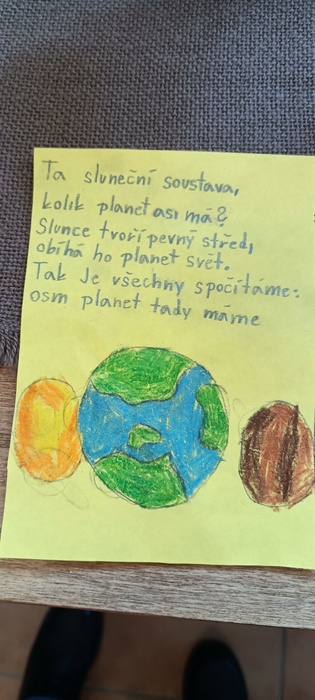 Ta sluneční soustava,
kolik planet asi má?
Slunce tvoří pevný střed,
obíhá ho planet svět.
Tak Je všechny spočítáme:
osm planet tady máme